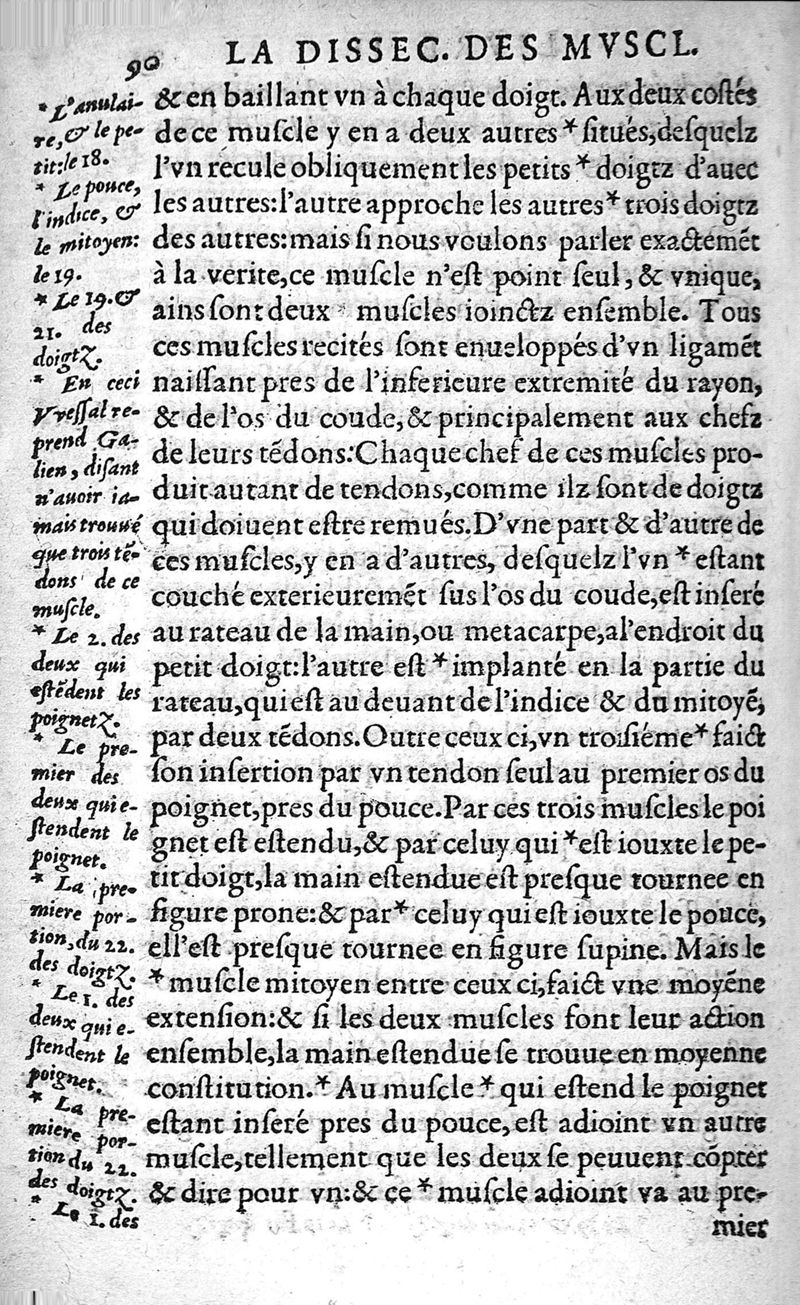 90
LA DISSEC. DES MVSCL.
& en baillant vn à chaque doigt. Aux deux costés
de ce muſcle y en a deux autres * ſitués, deſquelz
l'vn recule obliquement les petits * doigtz d'auec
les autres: l'autre approche les autres * trois doigtz
des autres: mais ſi nous voulons parler exactemẽt
à la verite, ce muſcle n'eſt point ſeul, & vnique,
ains ſont deux * muſcles ioinctz enſemble. Tous
ces muſcles recités ſont enueloppés d'vn ligamẽt
naiſſant pres de l'inferieure extremité du rayon,
& de l'os du coude, & principalement aux chefz
de leurs tẽdons: Chaque chef de ces muſcles pro-
duit autant de tendons, comme ilz ſont de doigtz
qui doiuent eſtre remués. D'vne part & d'autre de
ces muſcles, y en a d'autres, deſquelz l'vn * eſtant
couché exterieuremẽt ſus l'os du coude, eſt inſeré
au rateau de la main, ou metacarpe, al'endroit du
petit doigt: l'autre eſt * implanté en la partie du
rateau, qui eſt au deuant de l'indice & du mitoyẽ,
par deux tẽdons. Outre ceux ci, vn troiſiéme * faict
ſon inſertion par vn tendon ſeul au premier os du
poignet, pres du pouce. Par ces trois muſcles le poi
gnet eſt eſtendu, & par celuy qui * eſt iouxte le pe-
tit doigt, la main eſtendue eſt preſque tournee en
figure prone: & par * celuy qui eſt iouxte le pouce,
ell'eſt preſque tournee en figure ſupine. Mais le
* muſcle mitoyen entre ceux ci, faict vne moyẽne
extenſion: & ſi les deux muſcles font leur action
enſemble, la main eſtendue ſe trouue en moyenne
conſtitution. * Au muſcle * qui eſtend le poignet
eſtant inſeré pres du pouce, eſt adioint vn autre
muſcle, tellement que les deux ſe peuuent cõpter
& dire pour vn: & ce * muſcle adioint va au pre-
mier
* L'anulai-
re, & le pe-
tit: le 18.
* Le pouce,
l'indice, &
le mitoyen:
le 19.
* Le 19. &
21. des
doigtz.
* En ceci
Vreſſal re-
prend Ga-
lien, diſant
n'auoir ia-
mais trouué
que trois tẽ-
dons de ce
muſcle.
* Le 2. des
deux qui
eſtẽdent les
poignetz.
* Le pre-
mier des
deux qui e-
ſtendent le
poignet.
* La pre-
miere por-
tion, du 22.
des doigtz.
* Le 1. des
deux qui e-
ſtendent le
poignet.
* La pre-
miere por-
tion du 22.
des doigtz.
* Le 1. des